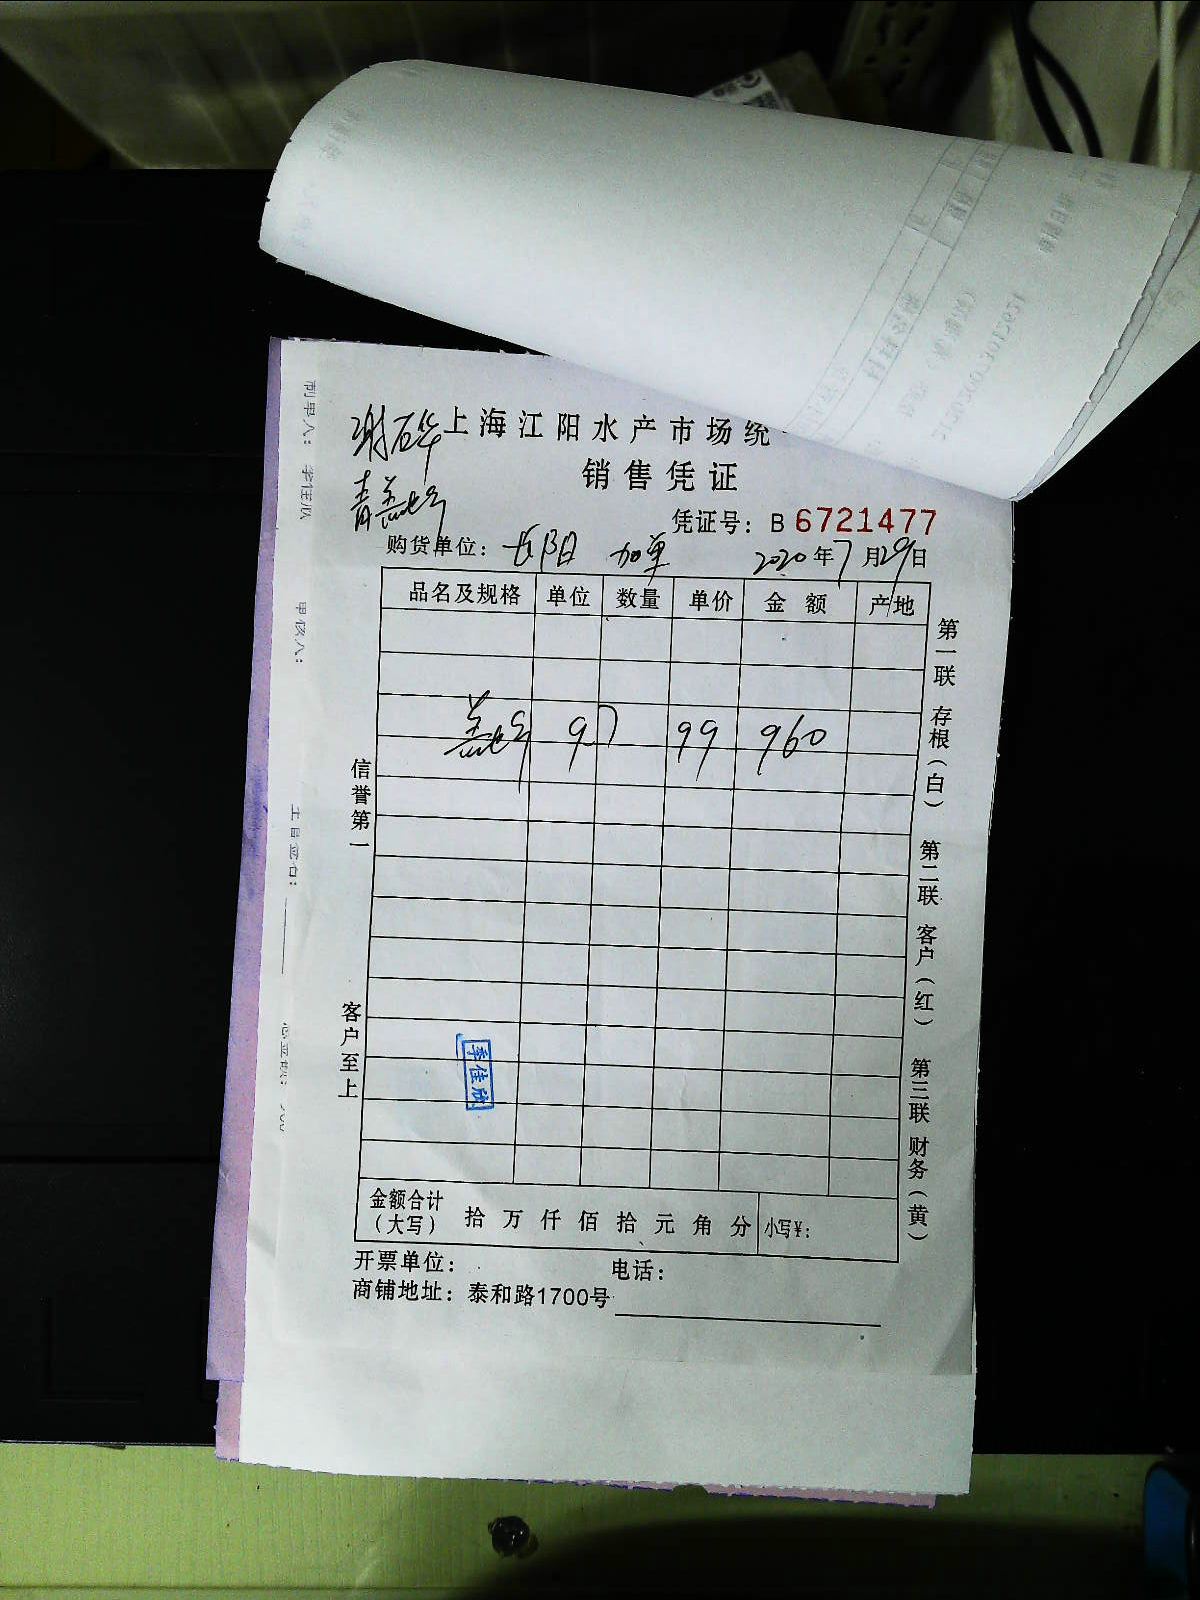 上海江阳水产市场统
销售凭证
凭证号：B 6721477
购货单位：长阳 加单 2020年7月29日
品名及规格 单位 数量 单价 金额 产地
97 99 960
信誉第一
客户至上
季佳欣
第一联 存根（白） 第二联 客户（红） 第三联 财务（黄）
金额合计（大写） 拾 万 仟 佰 拾 元 角 分 小写¥：
开票单位： 电话：
商铺地址：泰和路1700号